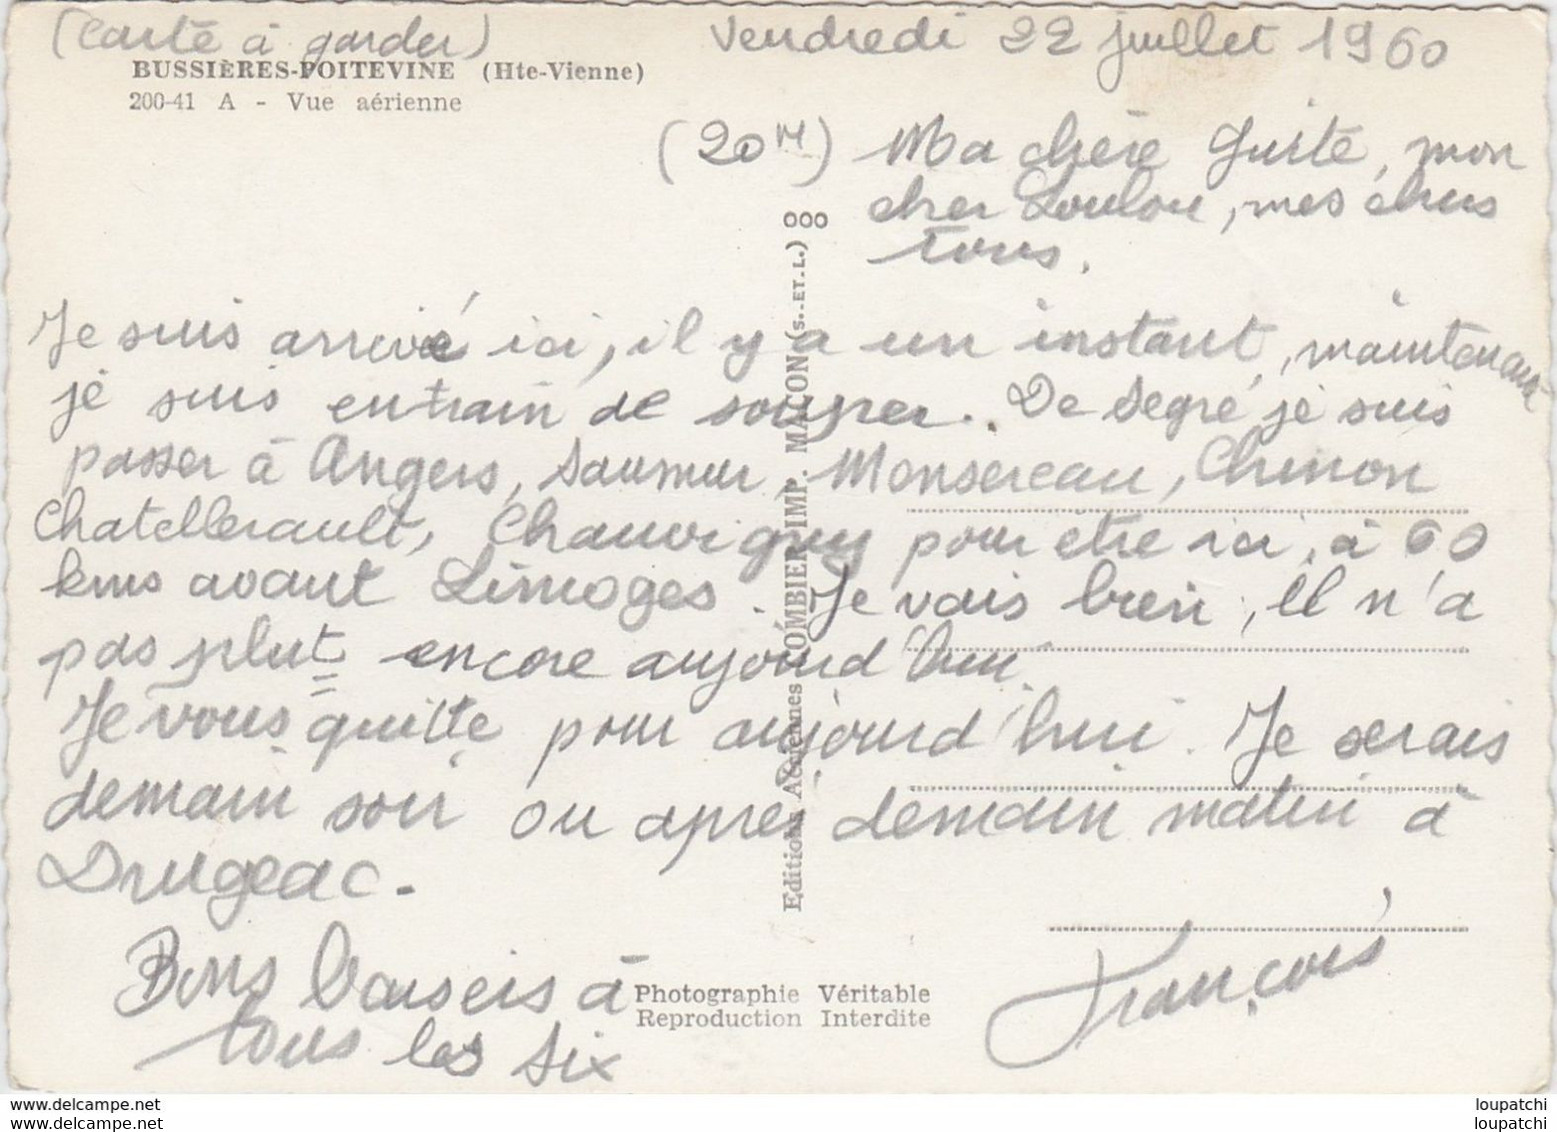 (Carte à garder)
Vendredi 22 juillet 1960
BUSSIÈRES-POITEVINE (Hte-Vienne)
200-41 A - Vue aérienne
(20 H) Ma chère Guite, mon
cher Loulou, mes chers
tous.
Je suis arrivé ici, il y a un instant, maintenant
je suis entrain de souper. De Segré je suis
passer à Angers, Saumur, Monsereau, Chinon
Chatellerault, Chauvigny pour être ici, à 60
kms avant Limoges. Je vais bien, il n'a
pas plut encore aujourd'hui.
Je vous quitte pour aujourd'hui. Je serais
demain soir ou après demain matin à
Drugeac.
Bons baisers à
tous les six
François
Editions Aériennes COMBIER IMP. MACON (S.-ET-L.) 000
Photographie Véritable
Reproduction Interdite
loupatchi loupatchi
loupatchi loupatchi